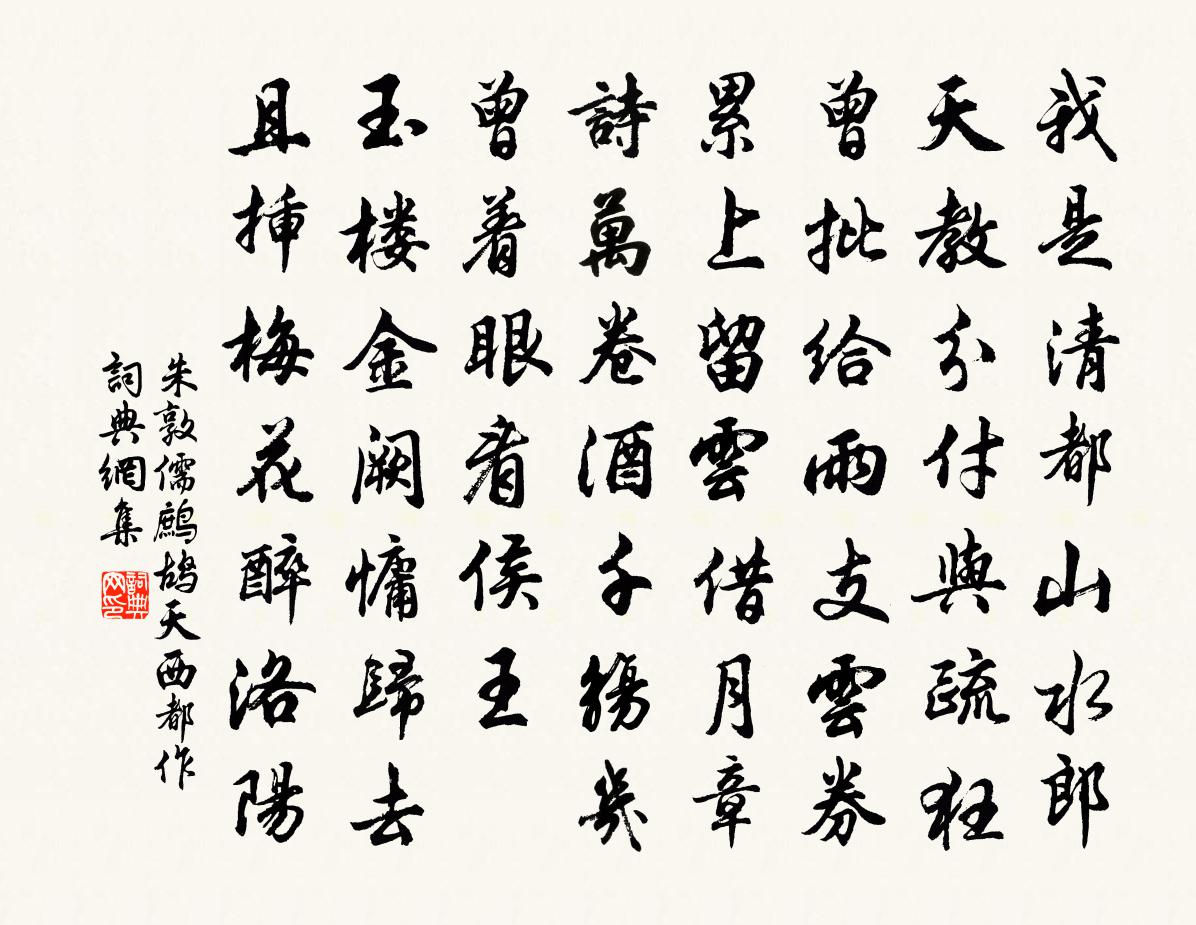 我是清都山水郎
天教分付與疏狂
曾批給雨支雲券
累上留雲借月章
詩萬卷酒千觴幾
曾着眼看侯王
玉楼金闕慵歸去
且挿梅花醉洛陽
朱敦儒鷓鴣天西都作
詞典網集
詞典网印